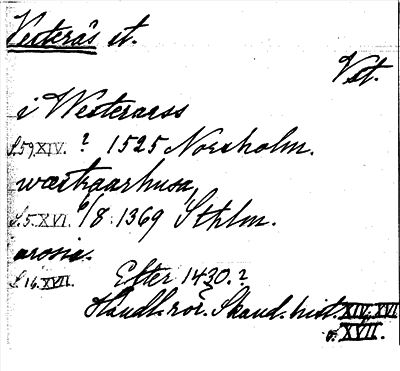 Västerås st.
Vst.
i Westerarss
S.59.XIV. ? 1525 Norsholm.
wæstraarhusa,
S.5.XVI. 6/8 1369 Sthlm.
arosia.
S.16.XVII. Efter 1430.?
Handl. rör. Skand. hist. XIV, XVI
o. XVII.